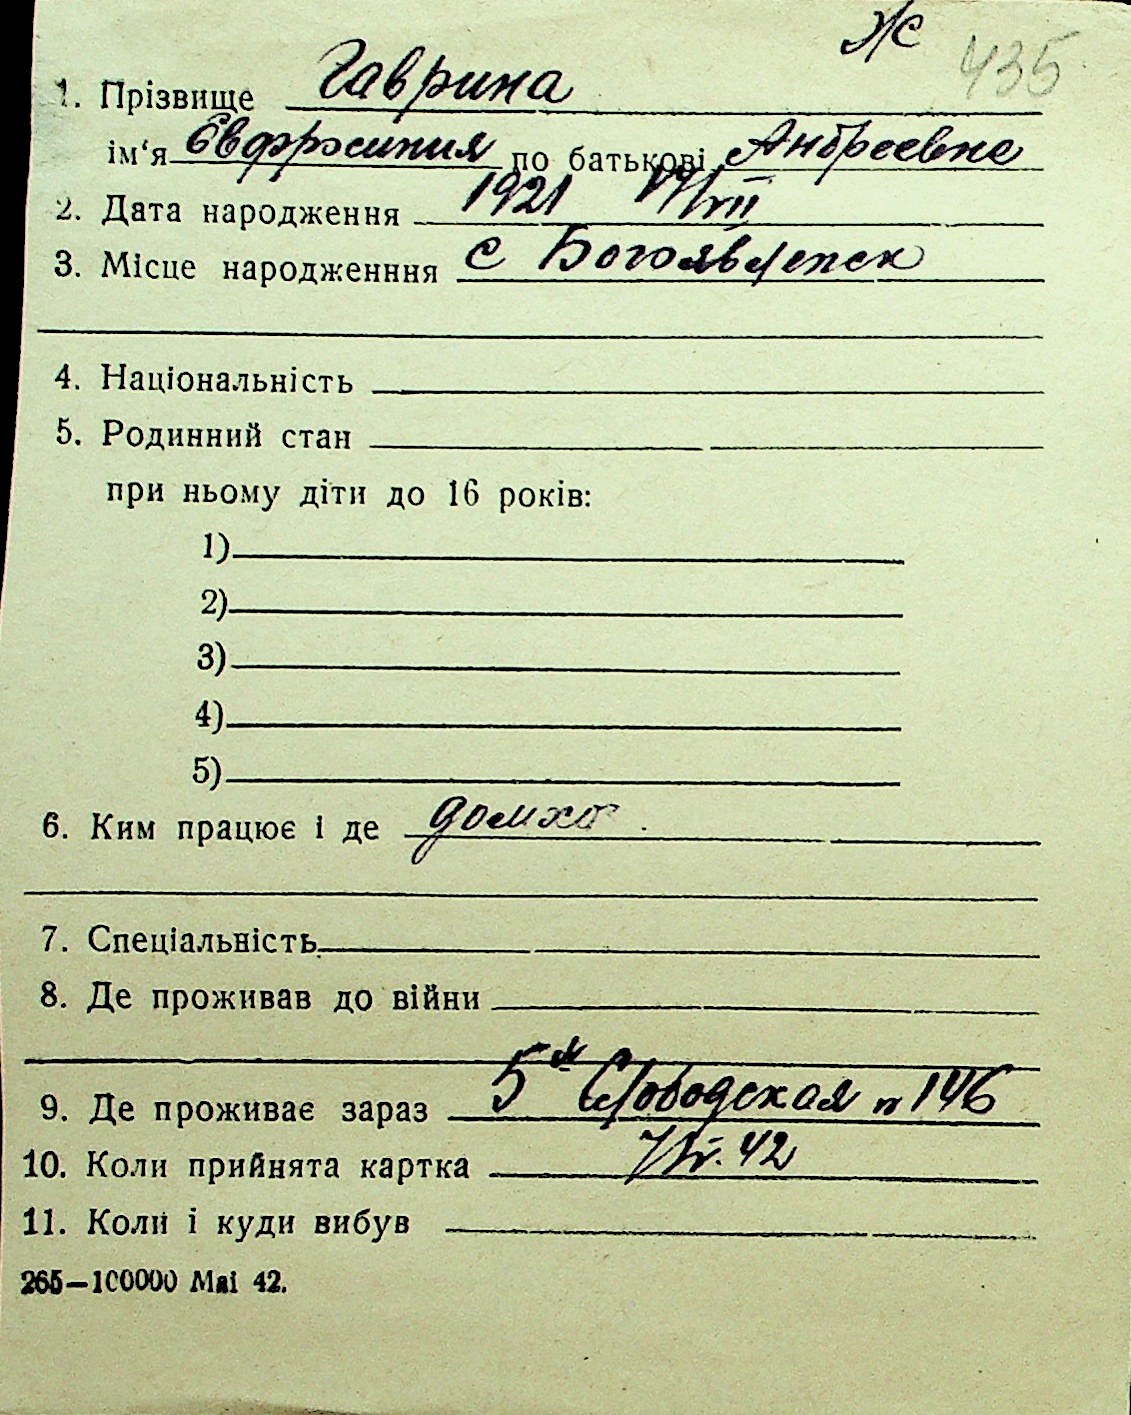 Ж 435
1. Прізвище Гаврина
ім‘я Євфросиния по батькові Андреевна
2. Дата народження 1921 17/VII
3. Місце народженння с Богоявленск
4. Національність
5. Родинний стан
при ньому діти до 16 років:
1)
2)
3)
4)
5)
6. Ким працює і де домхоз.
7. Спеціальність
8. Де проживав до війни
9. Де проживає зараз 5я Слободская n 146
10. Коли прийнята картка 42
11. Коли і куди вибув
265—100000 Mai 42.